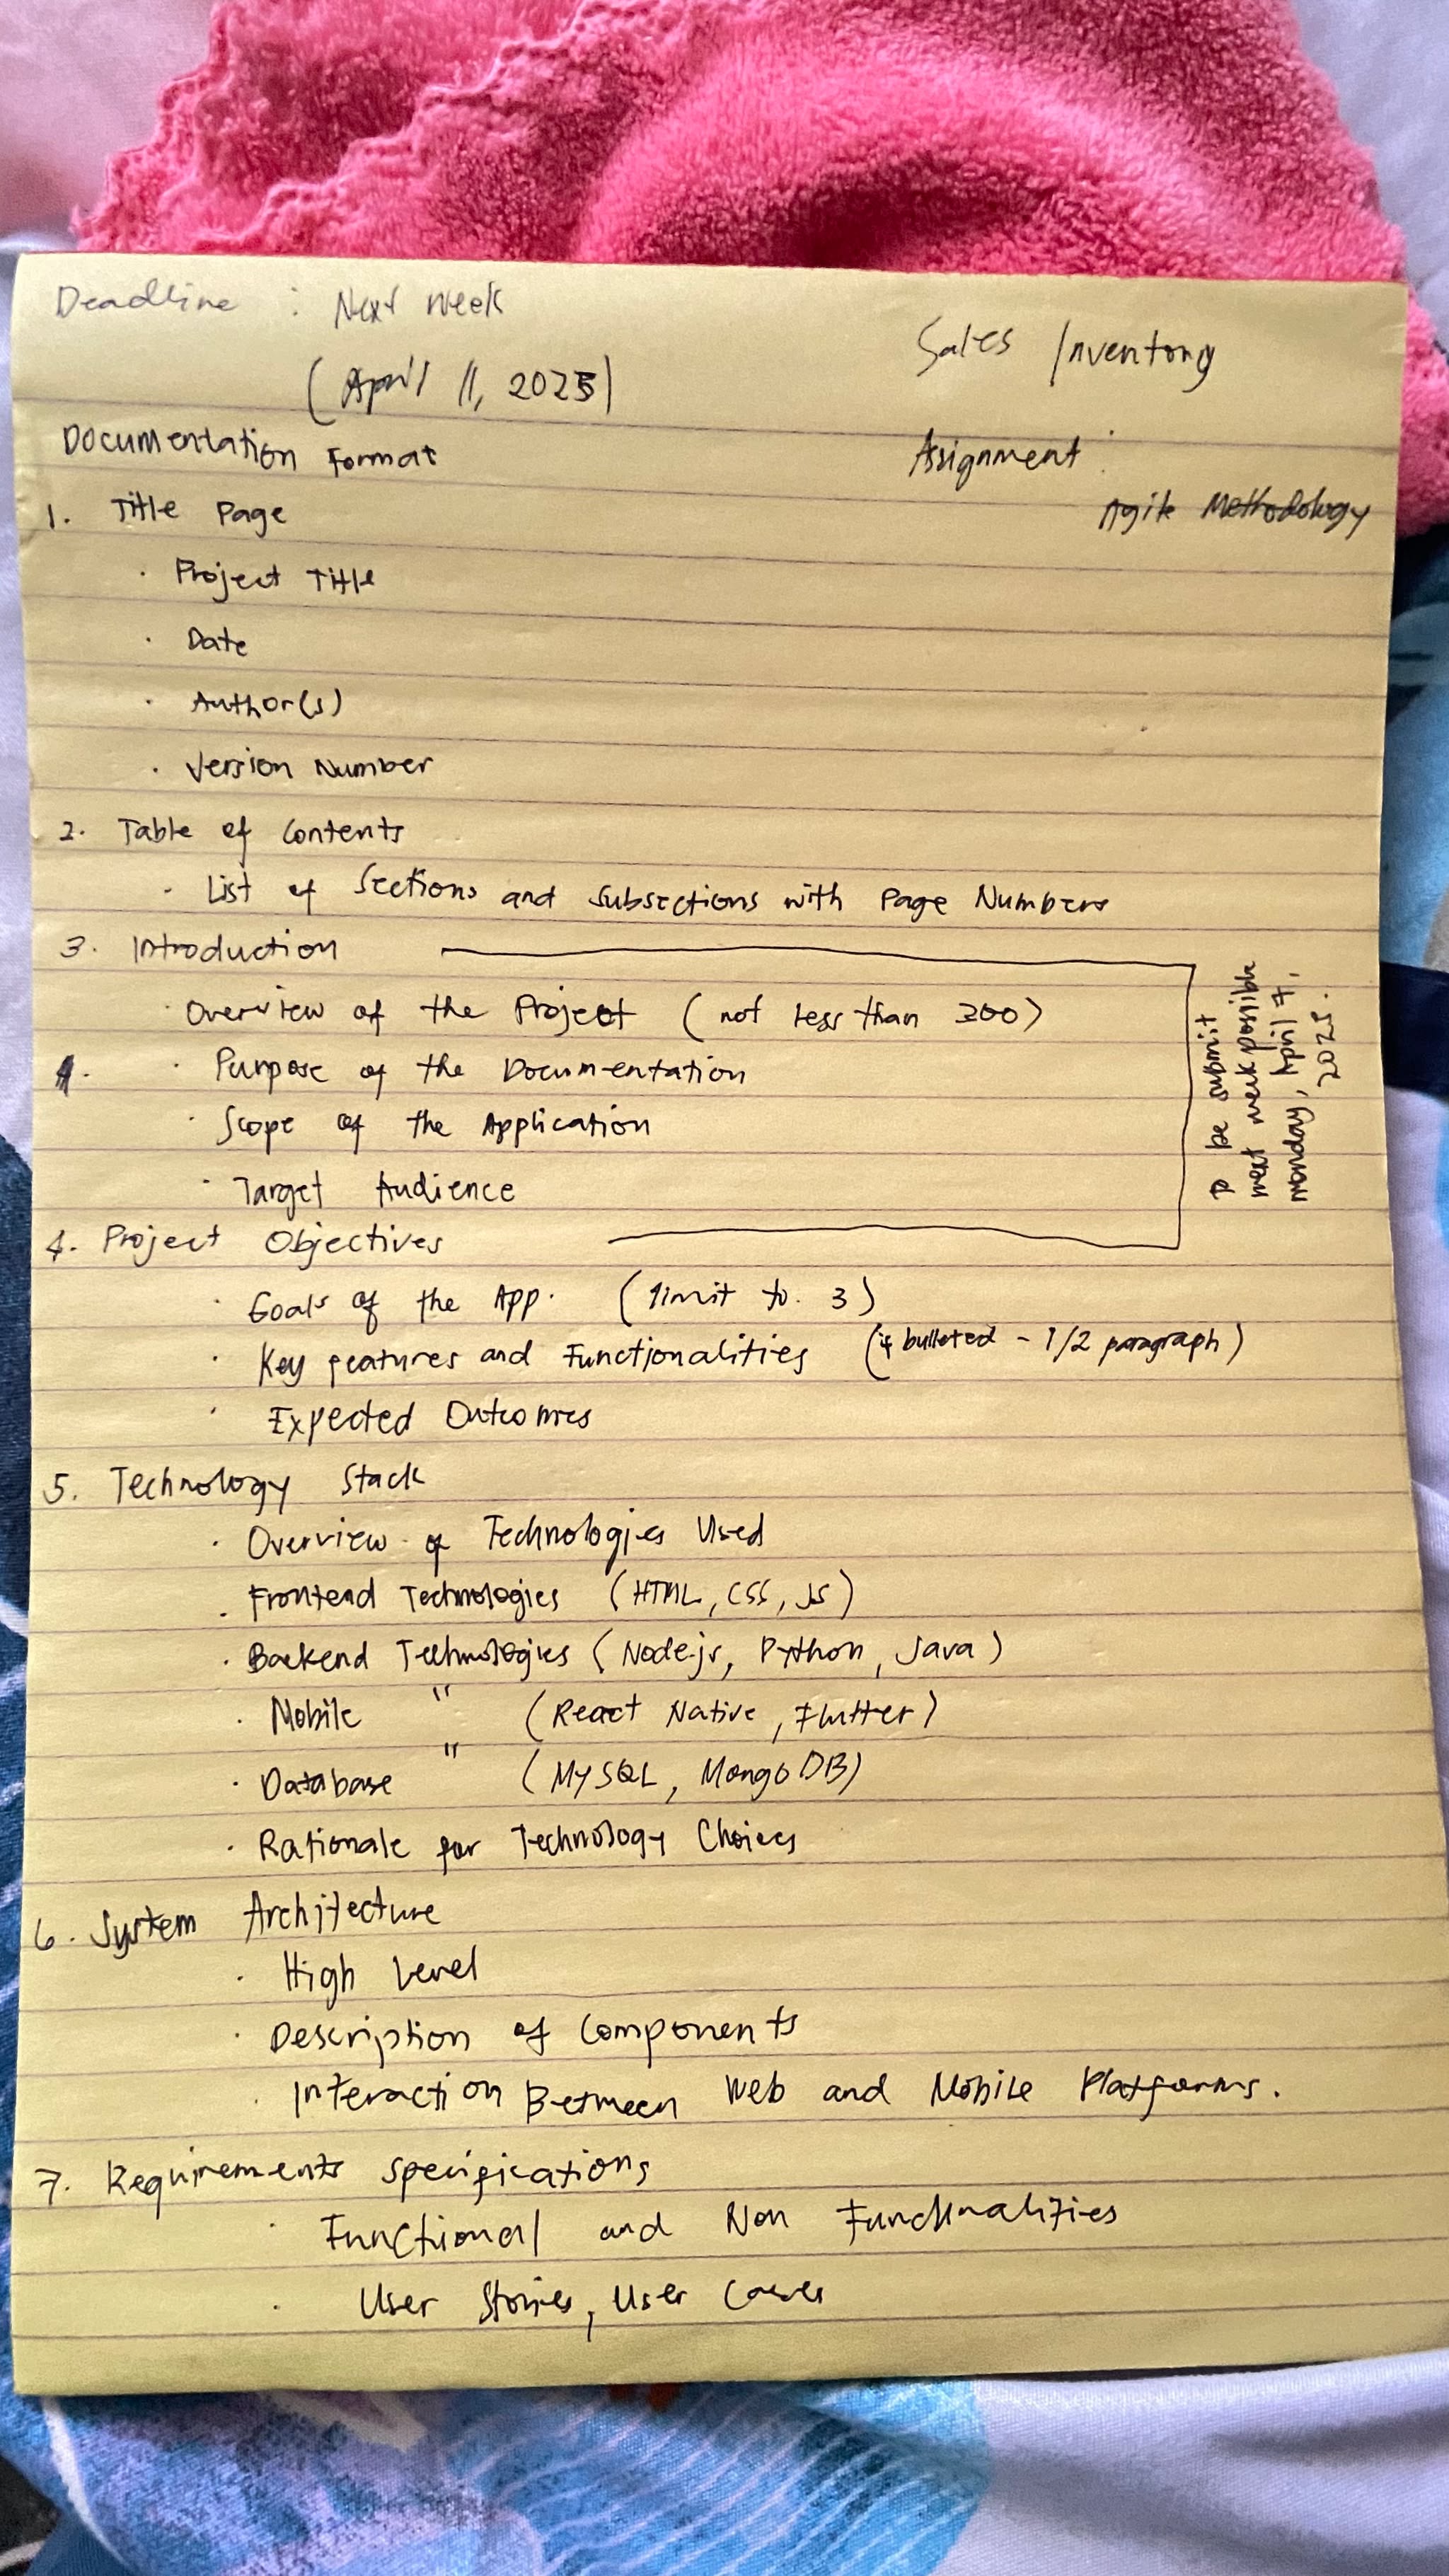 Deadline : Next Week
(April 11, 2025)
Sales Inventory
Documentation Format
Assignment :
Agile Methodology
1. Title Page
· Project Title
· Date
· Author(s)
· Version Number
2. Table of Contents
- List of Sections and Subsections with Page Numbers
3. Introduction
· Overview of the Project (not less than 300)
· Purpose of the Documentation
· Scope of the Application
· Target Audience
to be submit
next week posible
monday, April 7,
2025.
4. Project Objectives
· Goals of the App. (limit to 3)
· Key features and Functionalities (if bulleted - 1/2 paragraph)
· Expected Outcomes
5. Technology Stack
· Overview of Technologies Used
· Frontend Technologies (HTML, CSS, JS)
· Backend Technologies (Node.js, Python, Java)
· Mobile " (React Native, Flutter)
· Database " (MySQL, MongoDB)
· Rationale for Technology Choices
6. System Architecture
· High Level
· Description of Components
· Interaction Between Web and Mobile Platforms.
7. Requirements Specifications
· Functional and Non Functionalities
· User Stories, User Cases